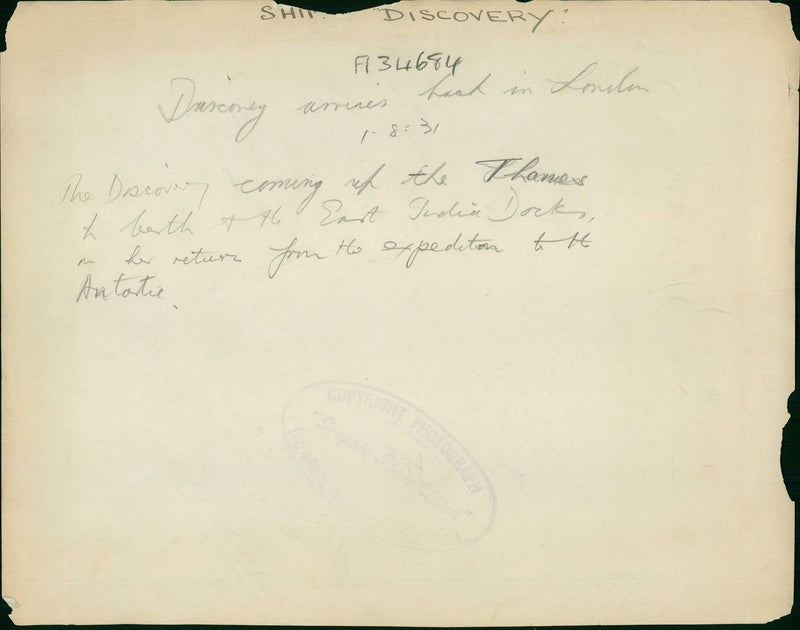 SHIP. "DISCOVERY."
A134684
Discovery arrives back in London
1-8-31
The Discovery coming up the Thames
to berth at the East India Docks,
on her return from the expedition to the
Antartic.
COPYRIGHT PHOTOGRAPH
"Graphic Photo Union"